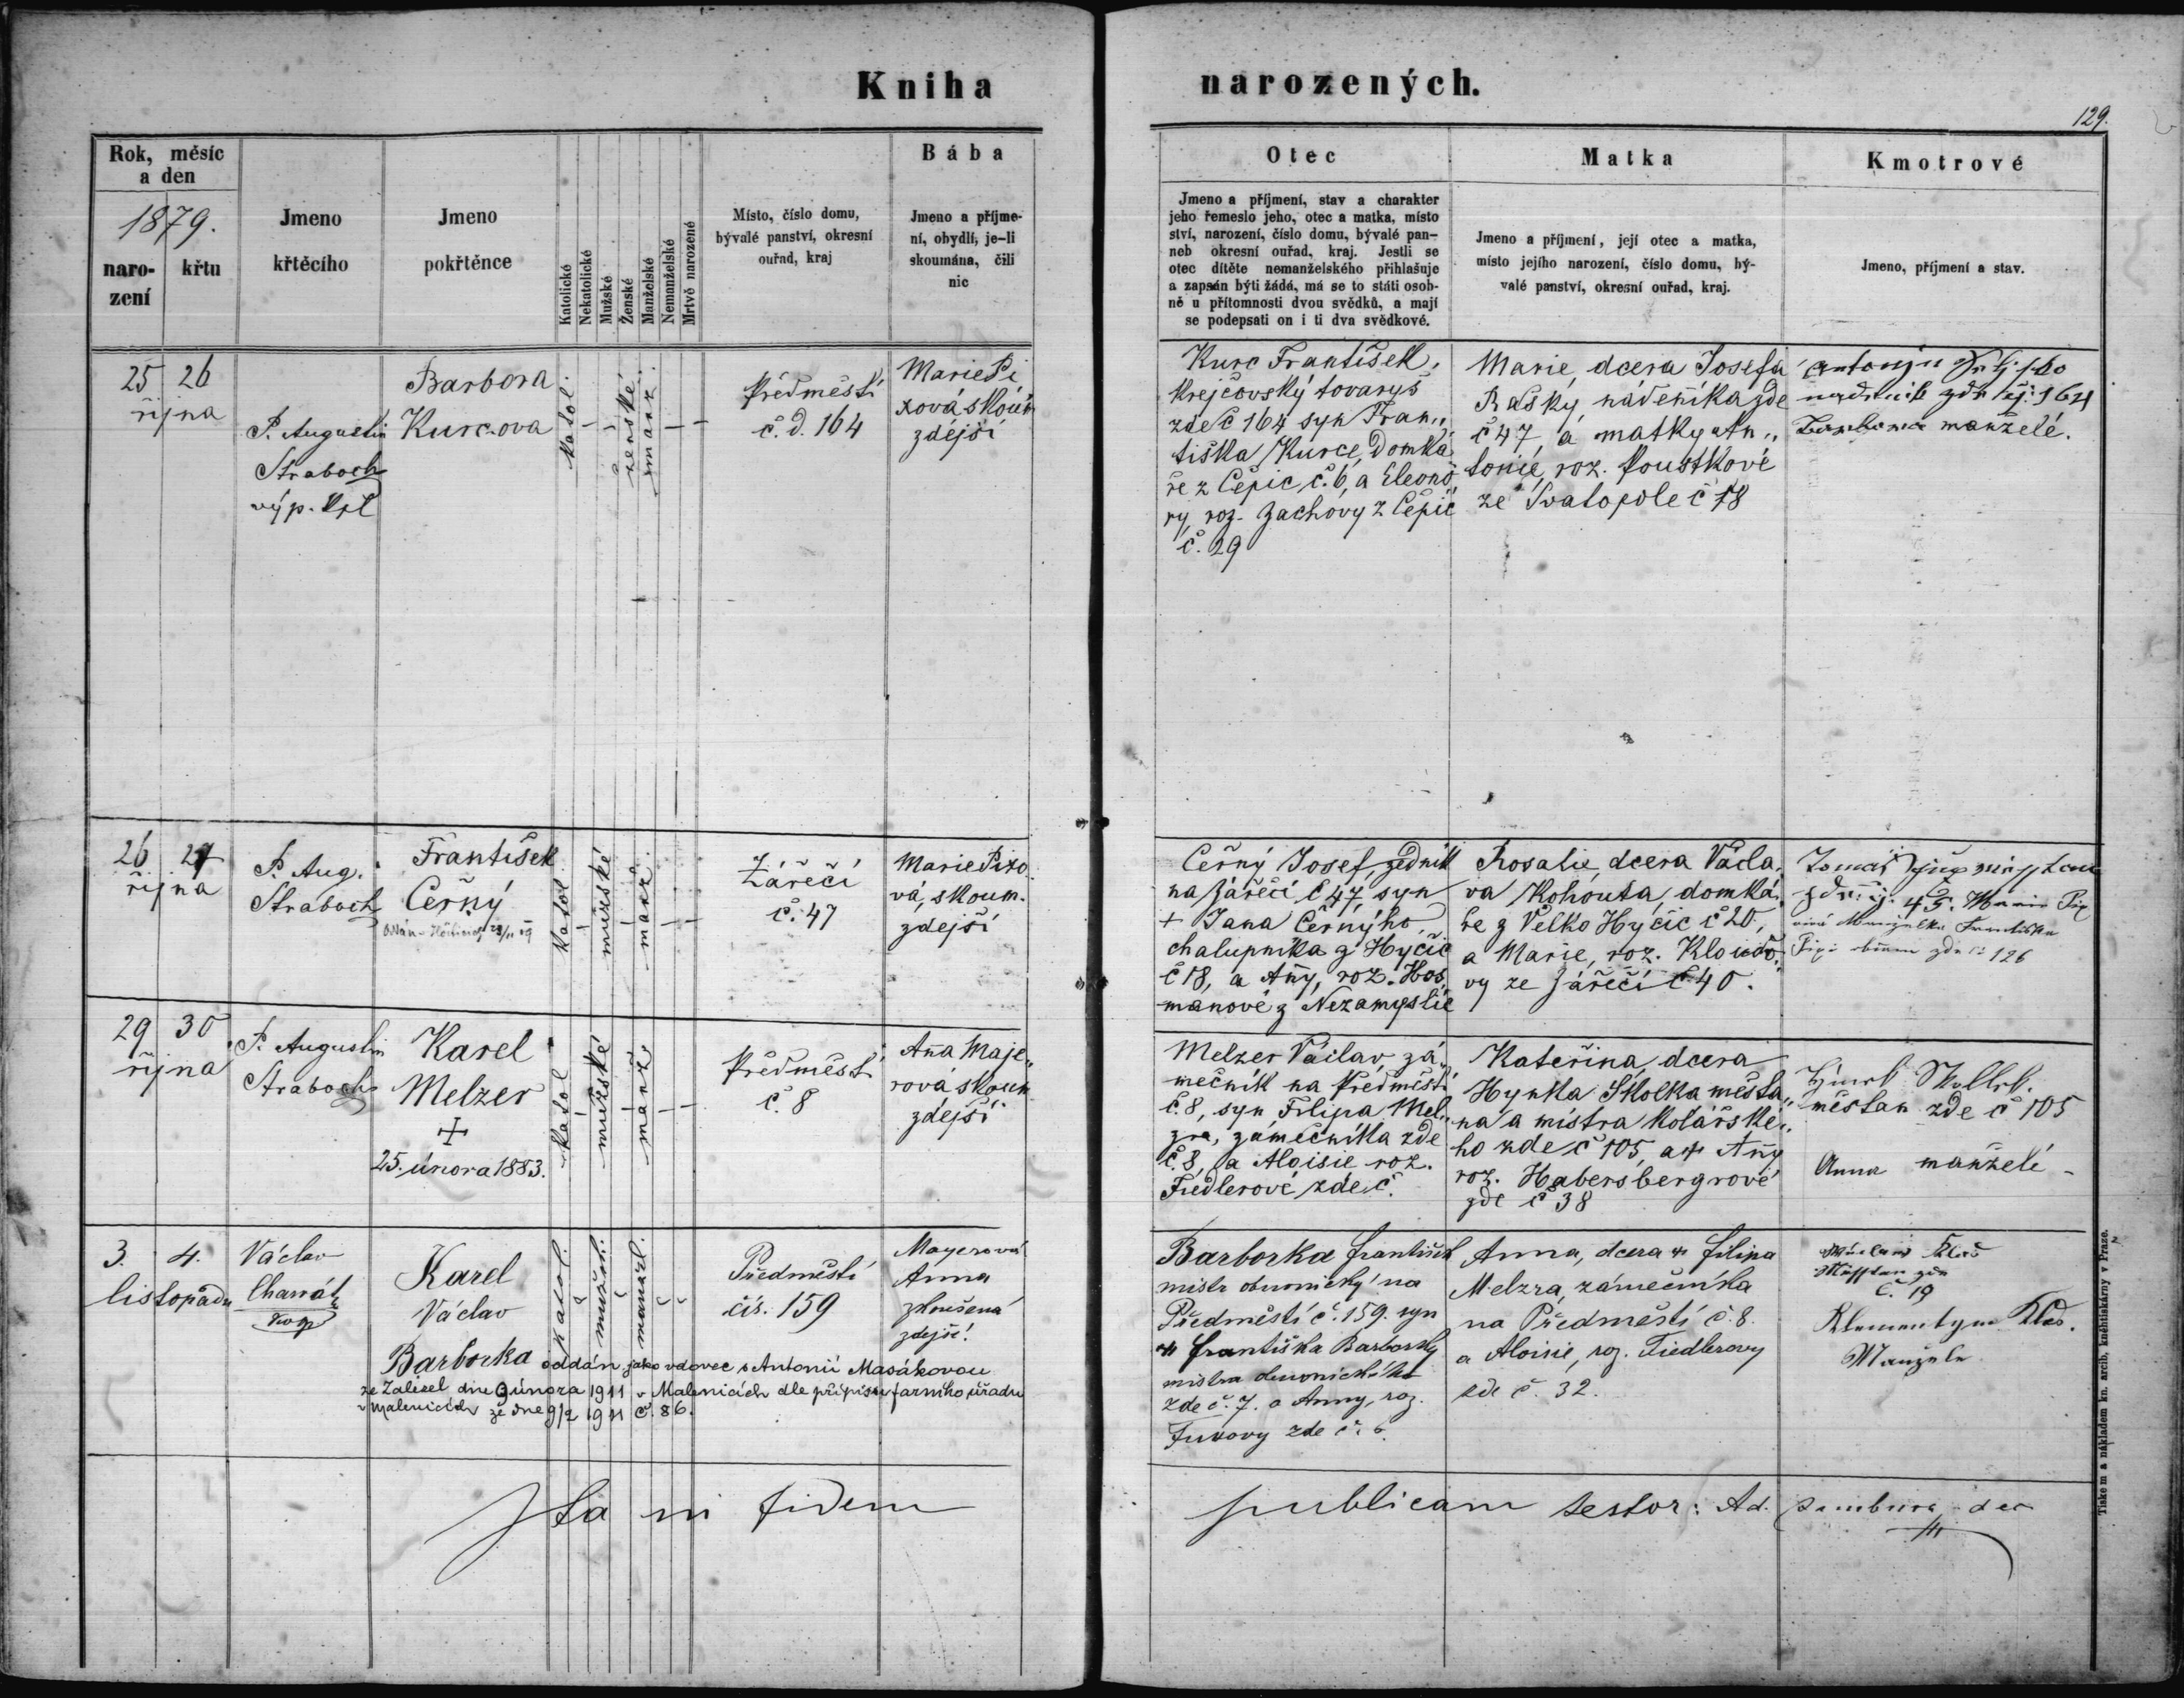 Kniha narozených.
129.
Rok, měsíc
a den
1879.
naro-
zení
křtu
Jmeno
křtěcího
Jmeno
pokřtěnce
Katolické
Nekatolické
Mužské
Ženské
Manželské
Nemanželské
Mrtvě narozené
Místo, číslo domu,
bývalé panství, okresní
ouřad, kraj
Bába
Jmeno a příjme-
ní, obydlí, je-li
skoumána, čili
nic
Otec
Jmeno a příjmení, stav a charakter
jeho řemeslo jeho, otec a matka, místo
ství, narození, číslo domu, bývalé pan-
neb okresní ouřad, kraj. Jestli se
otec dítěte nemanželského přihlašuje
a zapsán býti žádá, má se to státi osob-
ně u přítomnosti dvou svědků, a mají
se podepsati on i ti dva svědkové.
Matka
Jmeno a příjmení, její otec a matka,
místo jejího narození, číslo domu, bý-
valé panství, okresní ouřad, kraj.
Kmotrové
Jmeno, příjmení a stav.
25 26
října
P. Augustin
Straboch
Barbora
Kurcova
Katol.
ženské
manž.
Předměstí
č. d. 164
Marie Pi
xová skoum
zdejší
Kurc František,
krejčovský tovaryš
zde č 164 syn Fran„
tiška Kurce, Domka
ře z Čepic, č. 6, a Eleono
ry, roz. Zachovy z Čepic
č. 29
Marie, dcera Josefa
Rašky, nádeníka zde
č 47, a matky An„
tonie, roz. Poustkové
ze Svatopole č 18
manželé.
26 27
října
P. Aug.
Straboch
František
Černý
Katol.
mužské
manž.
Zářečí
č. 47
Marie Pixo
vá, skoum.
zdejší
Černý Josef, zedník
na Zářečí č 47, syn
+ Jana Černýho,
chalupníka z Hyčic
č 18, a Anny, roz. Hos
manové z Nezamyslic
Rosalie, dcera Václa
va Kohouta, domká
ře z Velko Hyčic č 20,
a Marie, roz. Kloudo
vy ze Zářečí č 40.
29 30
října
P. Augustin
Straboch
Karel
Melzer
+
25. února 1883.
Katol
mužské
manž
Předměstí
č. 8
Anna Maje„
rová skoum
zdejší
Melzer Václav, zá
mečník na Předměstí
č. 8, syn Filipa Mel„
zra, zámečníka zde
č. 8, a Aloisie roz.
Fiedlerové zde č.
Kateřina, dcera
Hynka Skolka měšťa„
na a mistra kolářské„
ho zde č 105, a + Anny
roz. Habersbergrové
zde č 38
měšťan zde č 105
Anna manželé
3. 4.
listopadu
Václav
Charvát
Karel
Václav
Barborka
katol.
mužsk.
manžel.
Předměstí
čís. 159
Mayerová
Anna
zkoušená
zdejší.
oddán jako vdovec s Antonií Masákovou
ze Zálesl dne 9 února 1911 v Malenicích dle přípisu farního úřadu
v Malenicích ze dne 9/2 1911 č. 86.
Barborka František
mistr obuvnický na
Předměstí č. 159. syn
+ Františka Barborky
mistra obuvnického
zde č. 7. a Anny, roz.
zde č. 6.
Anna, dcera + Filipa
Melzra, zámečníka
na Předměstí č. 8.
a Aloisie, roz. Fiedlerovy
zde č. 32.
č. 19
Manželé
Ita in fidem publicam testor: Ad.
Tiskem a nákladem kn. arcib. knihtiskárny v Praze.